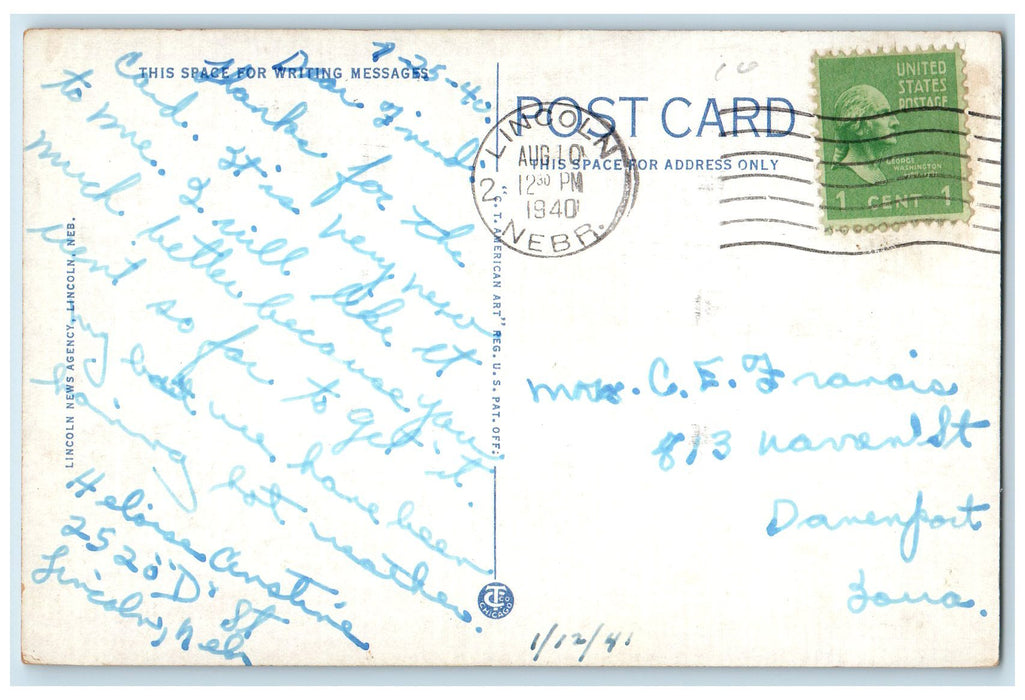 THIS SPACE FOR WRITING MESSAGES
7-25-40
Dear Friend.
Thanks for the
Card. It is very new
to me. I will like it
much better because you
went so far to get it.
my but we have been
having hot weather.
Heloise
2520 "D" St
Lincoln, Neb
LINCOLN NEWS AGENCY, LINCOLN, NEB.
"C. T. AMERICAN ART" REG. U. S. PAT. OFF.
CHICAGO
POST CARD
THIS SPACE FOR ADDRESS ONLY
LINCOLN
AUG 10
12 30 PM
1940
NEBR.
2
UNITED
STATES
POSTAGE
GEORGE
WASHINGTON
1 CENT 1
Mrs. C. E. Francis
813 St
Davenport
Iowa.
1/12/41